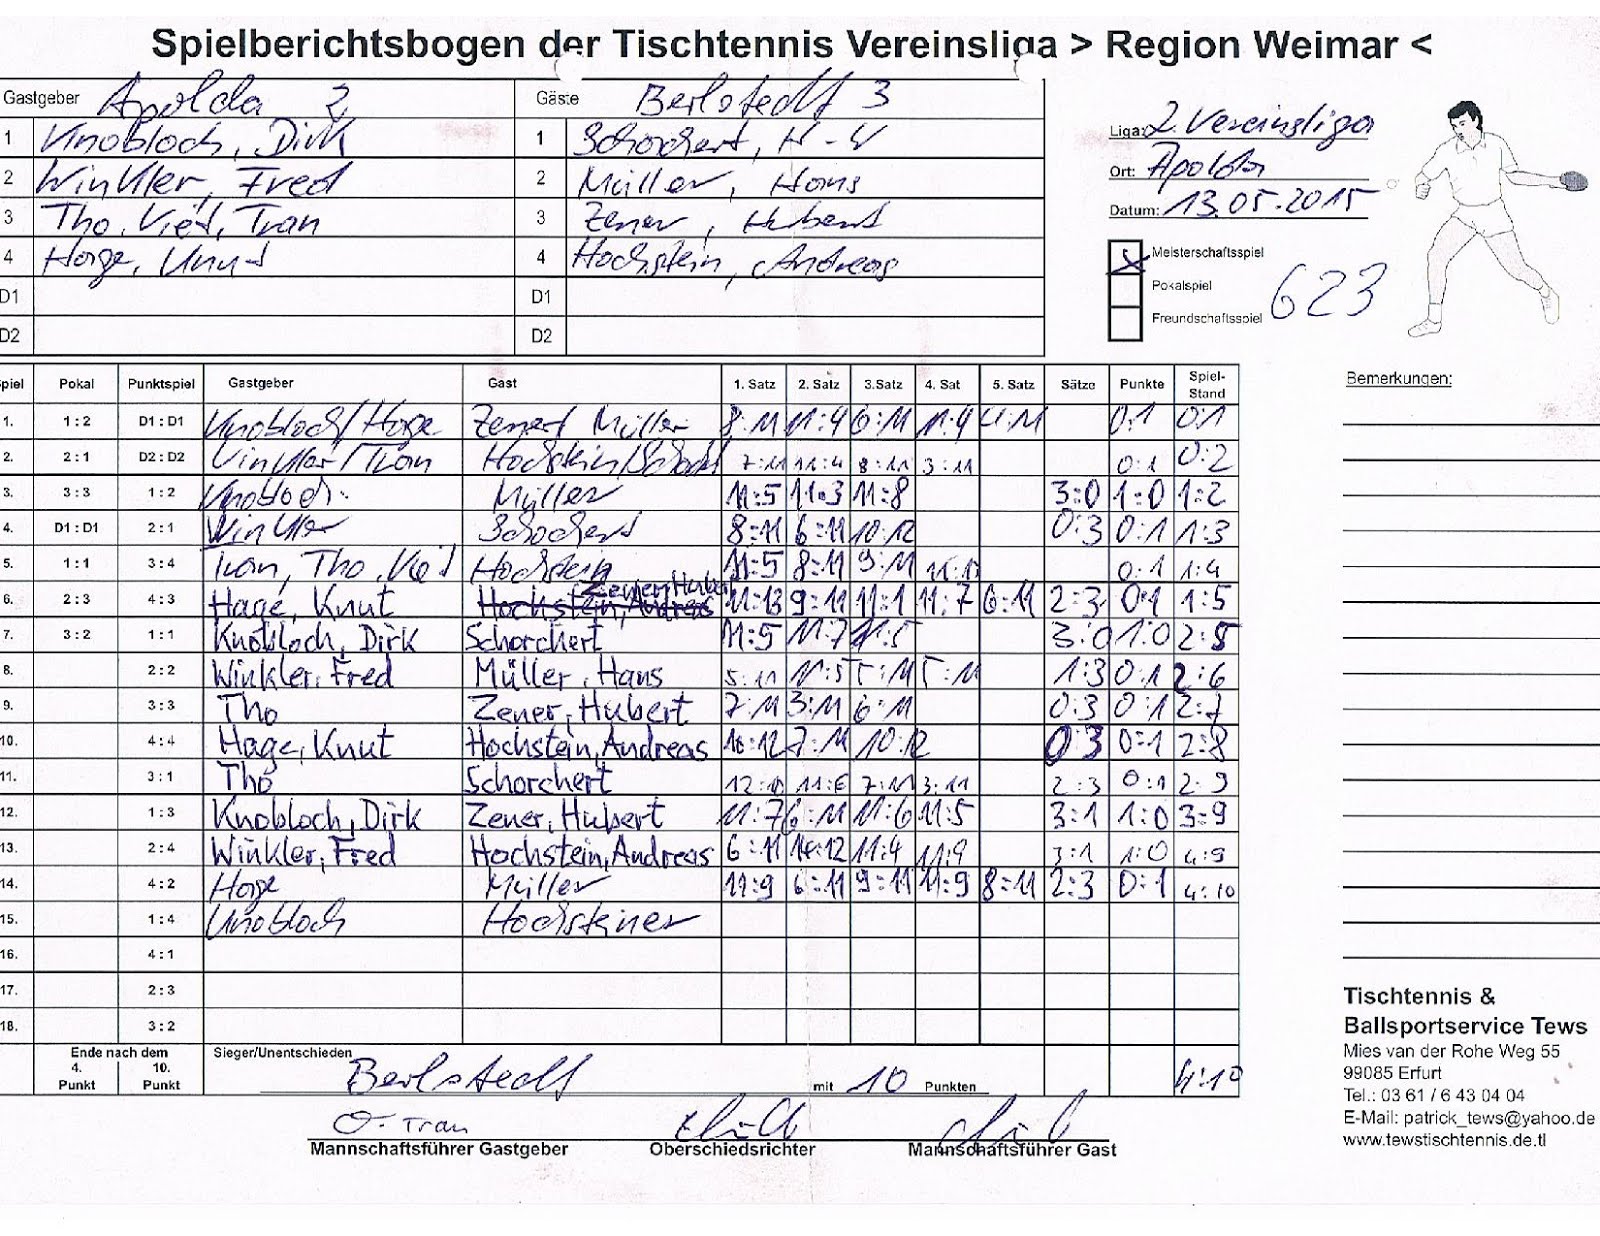 Spielberichtsbogen der Tischtennis Vereinsliga > Region Weimar <
Gastgeber Apolda 2 Gäste Berlstedt 3
1 Knobloch, Dirk 1 Schorchert, H-
2 Winkler, Fred 2 Müller, Hans
3 Tho. Viet, Tran 3 Zener, Hubert
4 Hage, Knut 4 Hochstein, Andreas
D1 D1
D2 D2
Liga: 2. Vereinsliga
Ort: Apolda
Datum: 13.05.2015
Meisterschaftsspiel
Pokalspiel
Freundschaftsspiel
623
Bemerkungen:
Spiel Pokal Punktspiel Gastgeber Gast 1. Satz 2. Satz 3.Satz 4. Sat 5. Satz Sätze Punkte Spiel-Stand
1. 1 : 2 D1 : D1 Knobloch/Hage Zenert Müller 8:11 11:4 6:11 11:4 4:11 0:1 0:1
2. 2 : 1 D2 : D2 Winkler/Tran Hochstein/Schoch 7:11 11:4 8:11 3:11 0:1 0:2
3. 3 : 3 1 : 2 Knobloch. Müller 11:5 11:3 11:8 3:0 1:0 1:2
4. D1 : D1 2 : 1 Winkler Schochert 8:11 6:11 10:12 0:3 0:1 1:3
5. 1 : 1 3 : 4 Tran, Tho. Viet Hochstein 11:5 8:11 9:11 0:1 1:4
6. 2 : 3 4 : 3 Hage, Knut Hochstein, Andreas Zener, Hubert 11:13 9:11 11:1 11:7 6:11 2:3 0:1 1:5
7. 3 : 2 1 : 1 Knobloch, Dirk Schorchert 11:5 11:7 11:5 3:0 1:0 2:5
8. 2 : 2 Winkler, Fred Müller, Hans 5:11 11:5 5:11 5:11 1:3 0:1 2:6
9. 3 : 3 Tho Zener, Hubert 7:11 3:11 6:11 0:3 0:1 2:7
10. 4 : 4 Hage, Knut Hochstein, Andreas 10:12 7:11 10:12 0:3 0:1 2:8
11. 3 : 1 Tho Schorchert 12:10 11:6 7:11 3:11 2:3 0:1 2:9
12. 1 : 3 Knobloch, Dirk Zener, Hubert 11:7 6:11 11:6 11:5 3:1 1:0 3:9
13. 2 : 4 Winkler, Fred Hochstein, Andreas 6:11 14:12 11:4 11:9 3:1 1:0 4:9
14. 4 : 2 Hage Müller 11:9 6:11 9:11 11:9 8:11 2:3 0:1 4:10
15. 1 : 4 Knobloch Hochsteiner
16. 4 : 1
17. 2 : 3
18. 3 : 2
Ende nach dem
4. Punkt 10. Punkt
Sieger/Unentschieden Berlstedt mit 10 Punkten 4:10
Tran
Mannschaftsführer Gastgeber Oberschiedsrichter Mannschaftsführer Gast
Tischtennis &
Ballsportservice Tews
Mies van der Rohe Weg 55
99085 Erfurt
Tel.: 03 61 / 6 43 04 04
E-Mail: patrick_tews@yahoo.de
www.tewstischtennis.de.tl